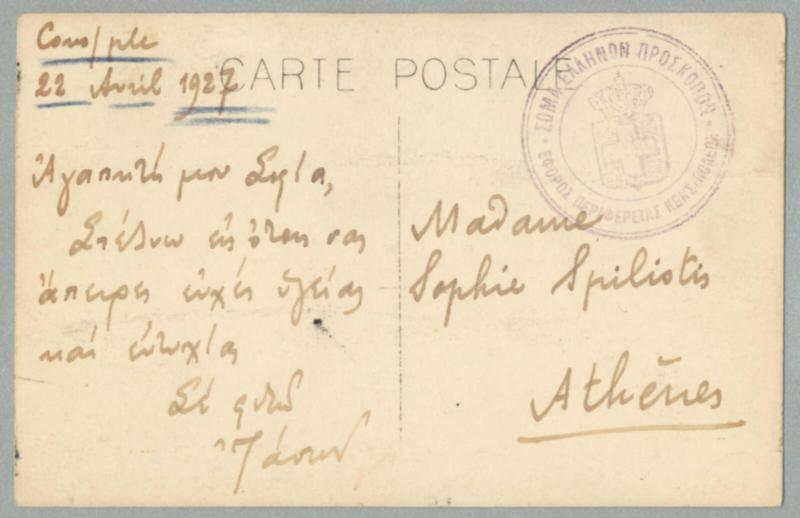 Cons/ple
22 Avril 1927
CARTE POSTALE
ΣΩΜΑ ΕΛΛΗΝΩΝ ΠΡΟΣΚΟΠΩΝ
ΕΦΟΡΟΣ ΠΕΡΙΦΕΡΕΙΑΣ ΚΩΝΣ/ΠΟΛΕΩΣ
Ἀγαπητή μου Σοφία,
Στέλνω εἰς ὅλους σας
ἄπειρες εὐχές ὑγείας
καί εὐτυχίας
Σέ φιλῶ
Madame
Sophie Spiliotis
Athènes